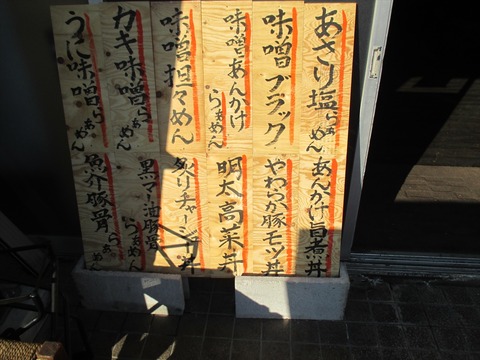 あさり塩らぁめん
味噌ブラック
味噌あんかけらぁめん
味噌担々めん
カキ味噌らぁめん
うに味噌らぁめん
あんかけ旨煮丼
やわらか豚モツ丼
明太高菜丼
炙りチャーシュー丼
黒マー油豚骨らぁめん
魚介豚骨らぁめん